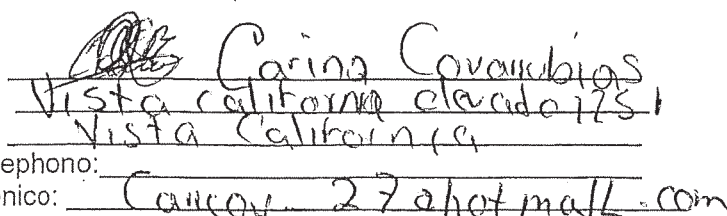 Carina Covarrubias
Vista california elevado 1251
Vista California
ephono:
nico: Carcov_27@hotmail.com